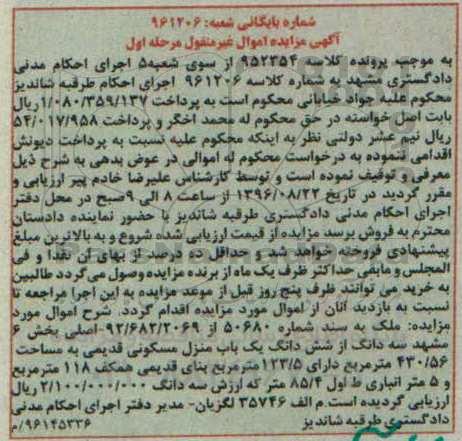 شماره بایگانی شعبه: ۹۶۱۲۰۶
آگهی مزایده اموال غیرمنقول مرحله اول
به موجب پرونده کلاسه ۹۵۲۳۵۴ از سوی شعبه۵ اجرای احکام مدنی
دادگستری مشهد به شماره کلاسه ۹۶۱۲۰۶ اجرای احکام طرقبه شاندیز
محکوم علیه جواد خیابانی محکوم است به پرداخت ۱/۰۸۰/۳۵۹/۱۳۷ریال
بابت اصل خواسته در حق محکوم له محمد اخگر و پرداخت ۵۴/۰۱۷/۹۵۸
ریال نیم عشر دولتی نظر به اینکه محکوم علیه نسبت به پرداخت دیونش
اقدامی ننموده به درخواست محکوم له اموالی در عوض بدهی به شرح ذیل
معرفی و توقیف نموده است و توسط کارشناس علیرضا خادم پیر ارزیابی و
مقرر گردید در تاریخ ۱۳۹۶/۰۸/۲۲ از ساعت ۸ الی ۹صبح در محل دفتر
اجرای احکام مدنی دادگستری طرقبه شاندیز با حضور نماینده دادستان
محترم به فروش برسد مزایده از قیمت ارزیابی شده شروع و به بالاترین مبلغ
پیشنهادی فروخته خواهد شد و حداقل ده درصد از بهای آن نقدا و فی
المجلس و مابقی حداکثر ظرف یک ماه از برنده مزایده وصول می‌گردد طالبین
به خرید می توانند ظرف پنج روز قبل از موعد مزایده به این اجرا مراجعه تا
نسبت به بازدید آنان از اموال مورد مزایده اقدام گردد. شرح اموال مورد
مزایده: ملک به سند شماره ۵۰۶۸۰ از ۹۲/۶۸۲/۲۰۶۹-اصلی بخش ۶
مشهد سه دانگ از شش دانگ یک باب منزل مسکونی قدیمی به مساحت
۴۳۰/۵۶ مترمربع دارای ۱۲۳/۵مترمربع بنای قدیمی همکف ۱۱۸ مترمربع
و ۵ متر انباری ط اول ۸۵/۴ متر که ارزش سه دانگ ۲/۱۰۰/۰۰۰/۰۰۰ ریال
ارزیابی گردیده است.م الف ۳۵۷۴۶ لگزیان- مدیر دفتر اجرای احکام مدنی
دادگستری طرقبه شاندیز ۹۶۱۴۵۳۳۶/م